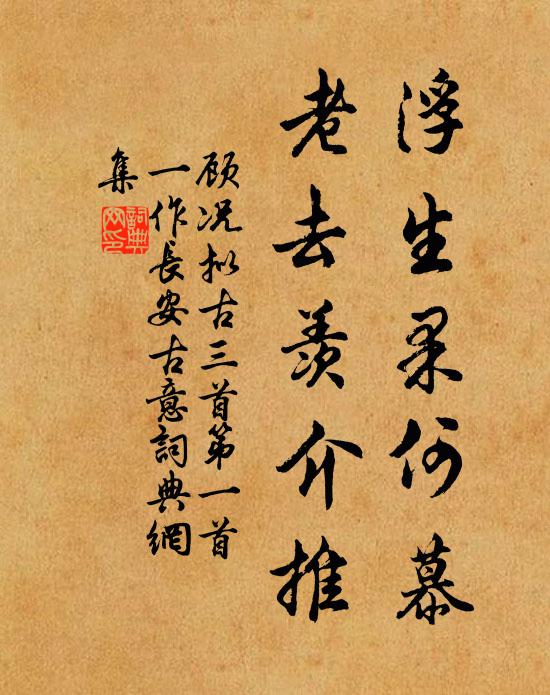 浮生果何慕
老去羨介推
顾况拟古三首第一首
一作長安古意詞典網
集
詞典网印